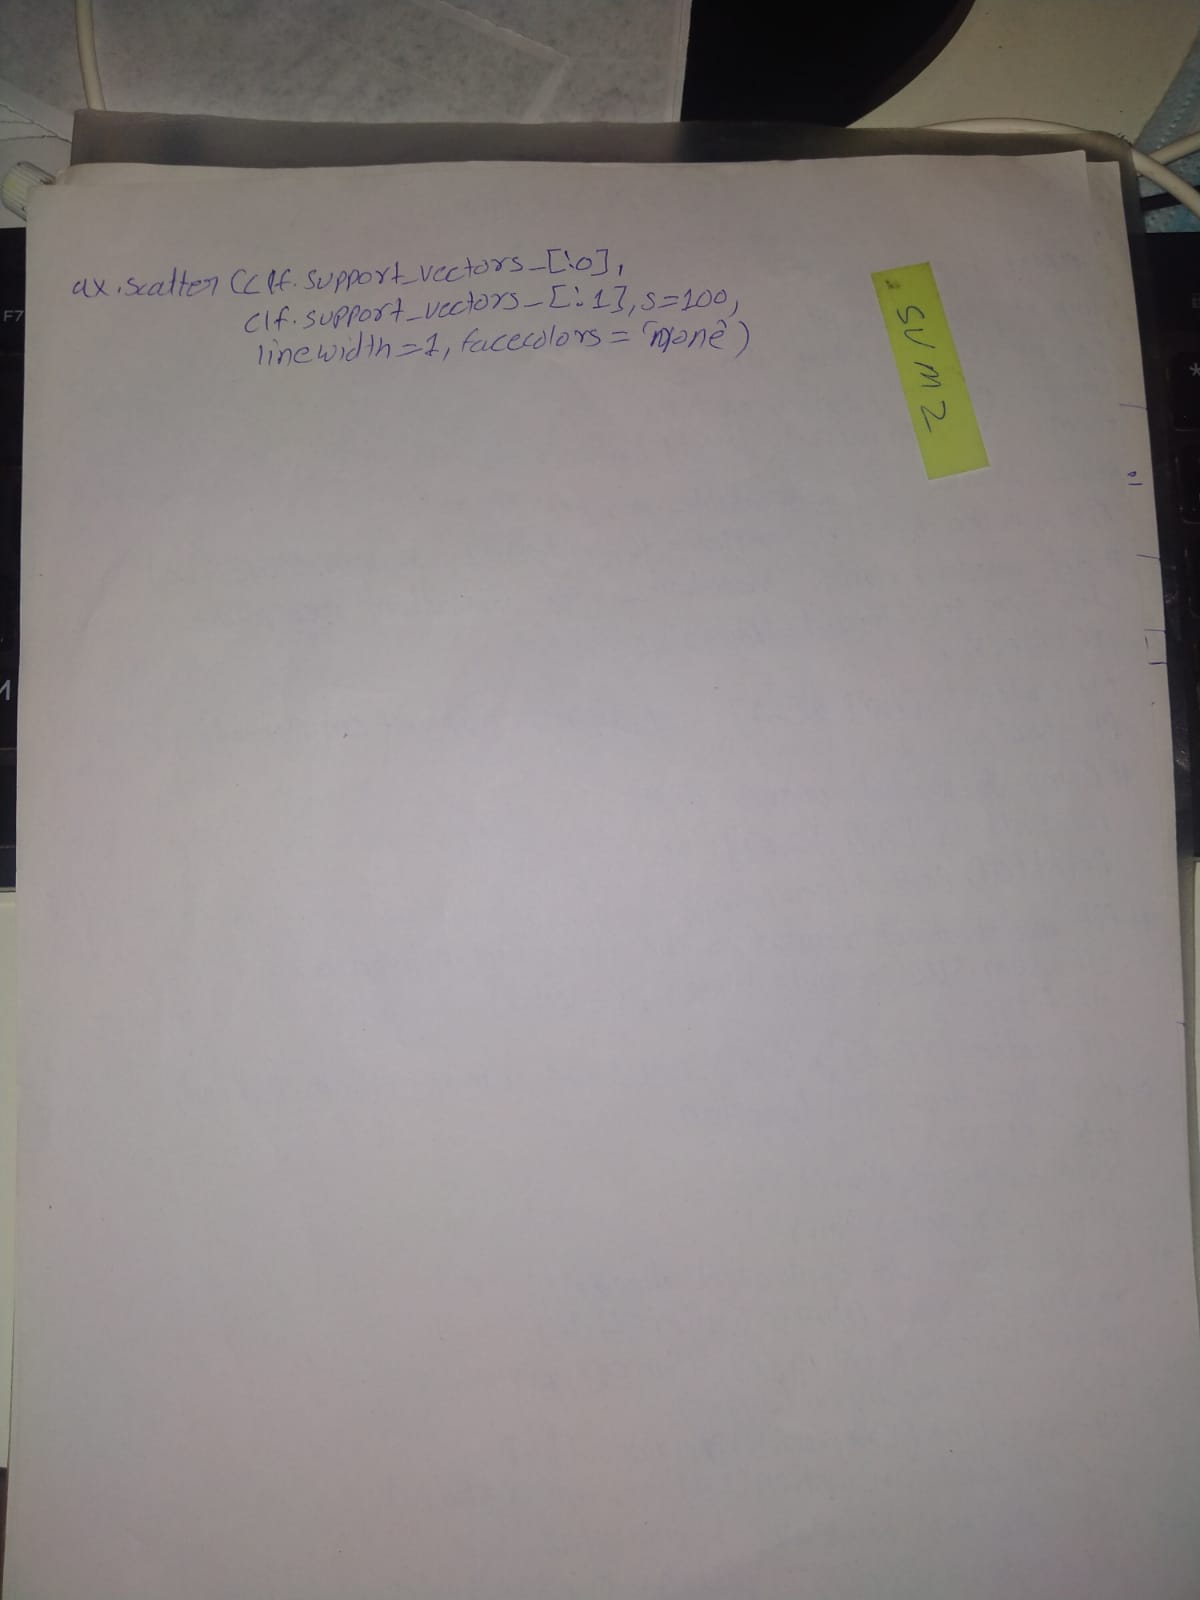 ax.scatter(clf.support_vectors_[:0],
clf.support_vectors_[:1], s=100,
linewidth=1, facecolors='none')
SVM 2
F7
M
*